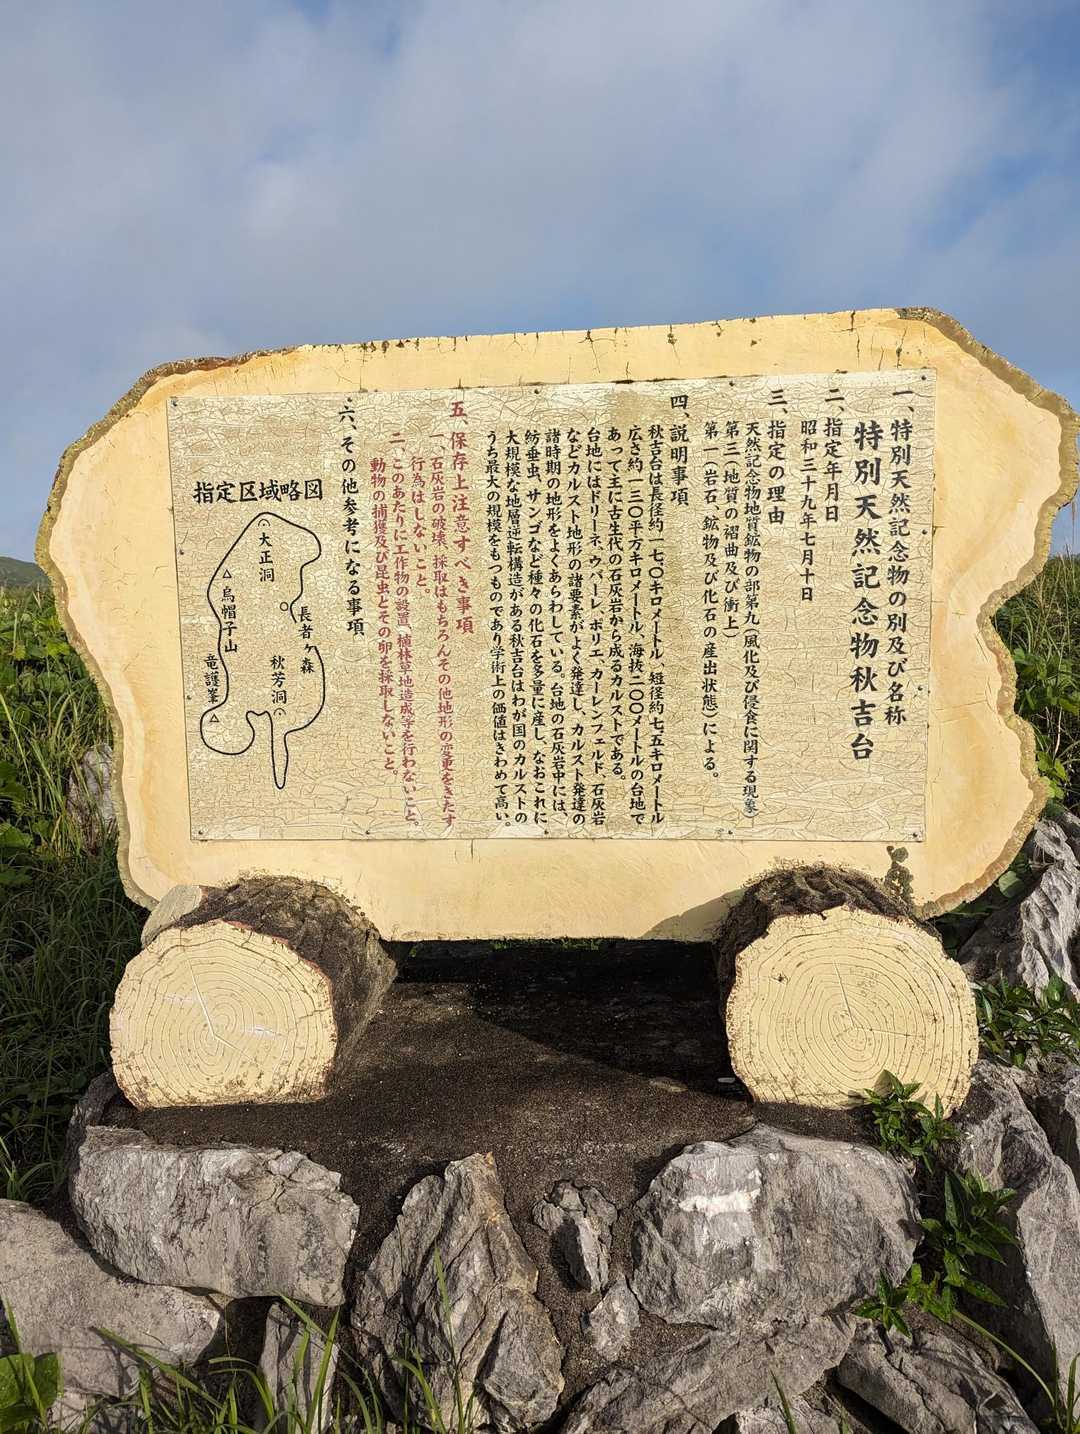 一、特別天然記念物の別及び名称
特別天然記念物秋吉台
二、指定年月日
昭和三十九年七月十日
三、指定の理由
天然記念物地質鉱物の部第九(風化及び侵食に関する現象)
第三(地質の褶曲及び衝上)
第一(岩石、鉱物及び化石の産出状態)による。
四、説明事項
秋吉台は長径約一七、〇キロメートル、短径約七、五キロメートル
広さ約一三〇平方キロメートル、海抜二〇〇メートルの台地で
あって主に古生代の石灰岩から成るカルストである。
台地にはドリーネ、ウバーレ、ポリエ、カーレンフェルド、石灰岩
などカルスト地形の諸要素がよく発達し、カルスト発達の
諸時期の地形をよくあらわしている。台地の石灰岩中には、
紡垂虫、サンゴなど種々の化石を多量に産し、なおこれに
大規模な地層逆転構造がある秋吉台はわが国のカルストの
うち最大の規模をもつものであり学術上の価値はきわめて高い。
五、保存上注意すべき事項
一、石灰岩の破壊、採取はもちろんその他地形の変更をきたす
行為はしないこと。
二、このあたりに工作物の設置、植林草地造成等を行わないこと。
動物の捕獲及び昆虫とその卵を採取しないこと。
六、その他参考になる事項
指定区域略図
大正洞
烏帽子山
長者ヶ森
秋芳洞
竜護峯